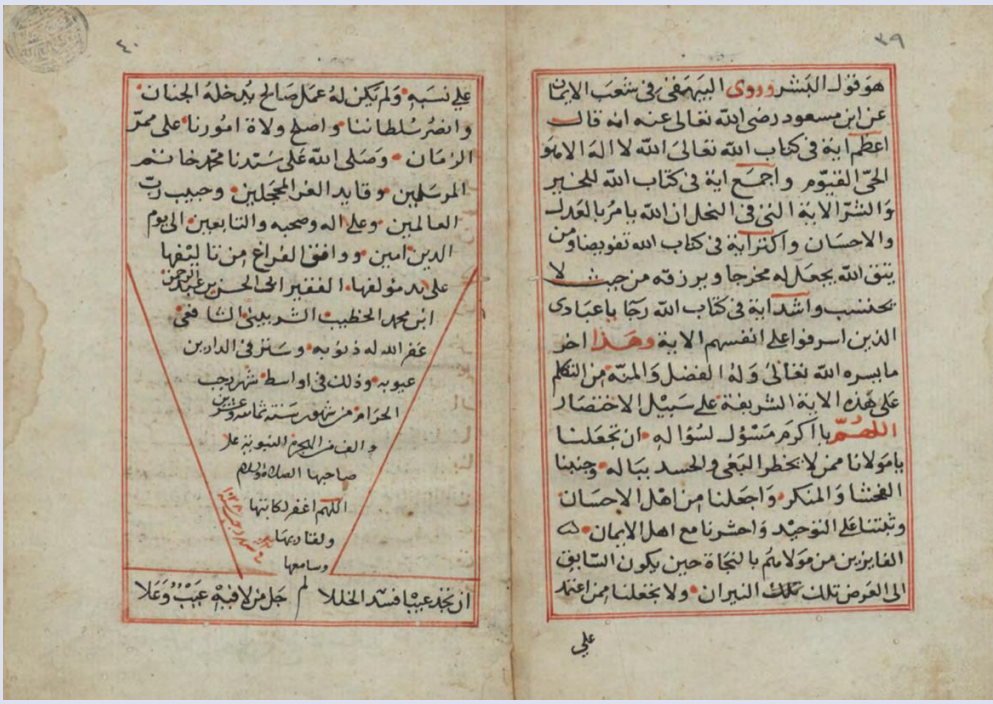 ٣٩
هو قول البشر وروى البيهقى فى شعب الايمان
عن ابن مسعود رضى الله تعالى عنه انه قال
اعظم اية فى كتاب الله تعالى الله لا اله الا هو
الحى القيوم واجمع اية فى كتاب الله للخير
والشر الاية التى فى النحل ان الله يامر بالعدل
والاحسان واكثر اية فى كتاب الله تفويضا ومن
يتق الله يجعل له مخرجا ويرزقه من حيث لا
يحتسب واشد اية فى كتاب الله رجا يا عبادى
الذين اسرفوا على انفسهم الاية وهذا اخر
ما يسره الله تعالى وله الفضل والمنة من التكلم
على هذه الاية الشريفة على سبيل الاختصار
اللهم يا اكرم مسؤل لسؤاله ان تجعلنا
يا مولانا ممن لا يخطر البغى والحسد بباله وجنبنا
الفحشا والمنكر واجعلنا من اهل الاحسان
وثبتنا على التوحيد واحشرنا مع اهل الايمان
الفايزين من مولاهم بالنجاة حين يكون السابق
الى العرض تلك النيران ولا تجعلنا ممن اعتمد
على
٤٠
على نسبه ولم يكن له عمل صالح يدخله الجنان
وانصر سلطاننا واصلح ولاة امورنا على ممر
الزمان وصلى الله على سيدنا محمد خاتم
المرسلين وقايد الغر المحجلين وحبيب رب
العالمين وعلى اله وصحبه والتابعين الى يوم
الدين امين ووافق الفراغ من تاليفها
على يد مولفها الفقير الى الحسن بن عبد الرحمن
ابن محمد الخطيب الشربينى الشافعى
غفر الله له ذنوبه وستر فى الدارين
عيوبه وذلك فى اواسط شهر رجب
الحرام من شهور سنة ثمانية وعشرين
والف من الهجرة النبوية على
صاحبها الصلاة والسلام
اللهم اغفر لكاتبها
ولقاريها
وسامعها
ان تجد عيبا فسد الخللا جل من لا فيه عيب وعلا